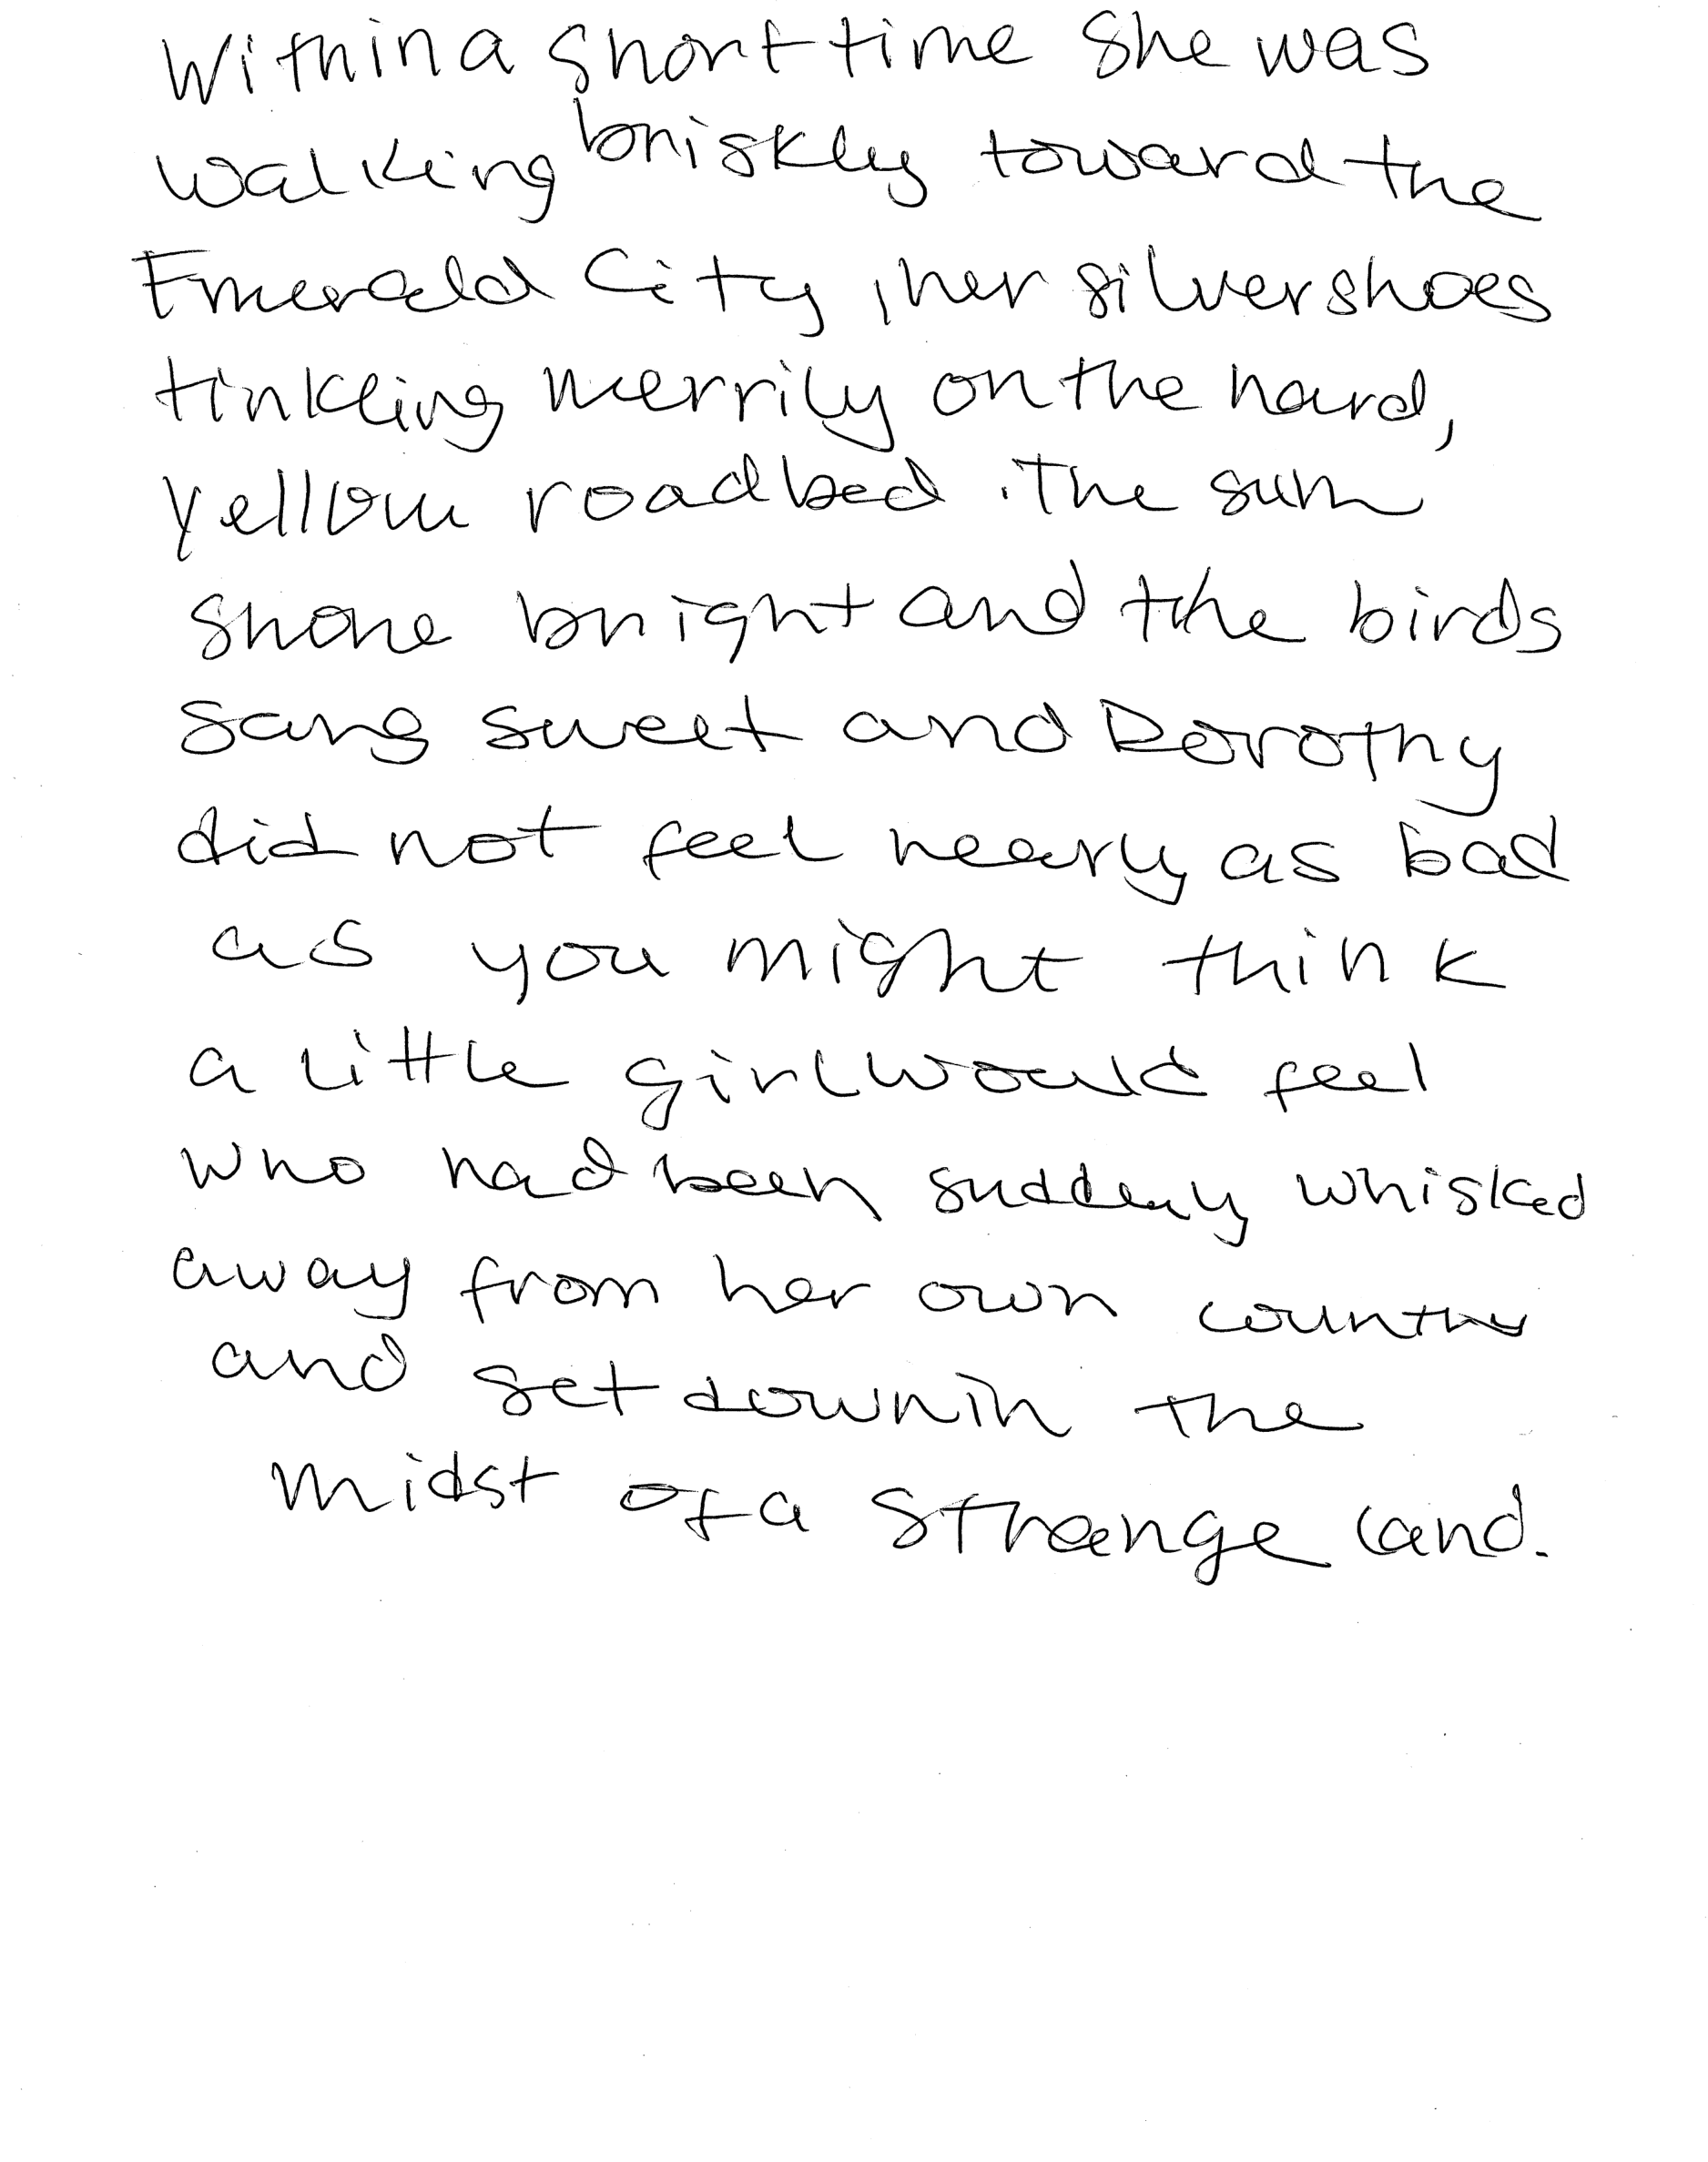 Within a short time she was
walking briskly toward the
Emerald City, her silver shoes
tinkling merrily on the hard,
yellow roadbed. The sun
shone bright and the birds
sang sweet and Dorothy
did not feel nearly as bad
as you might think
a little girl would feel
who had been suddenly whisked
away from her own country
and set down in the
midst of a strange land.